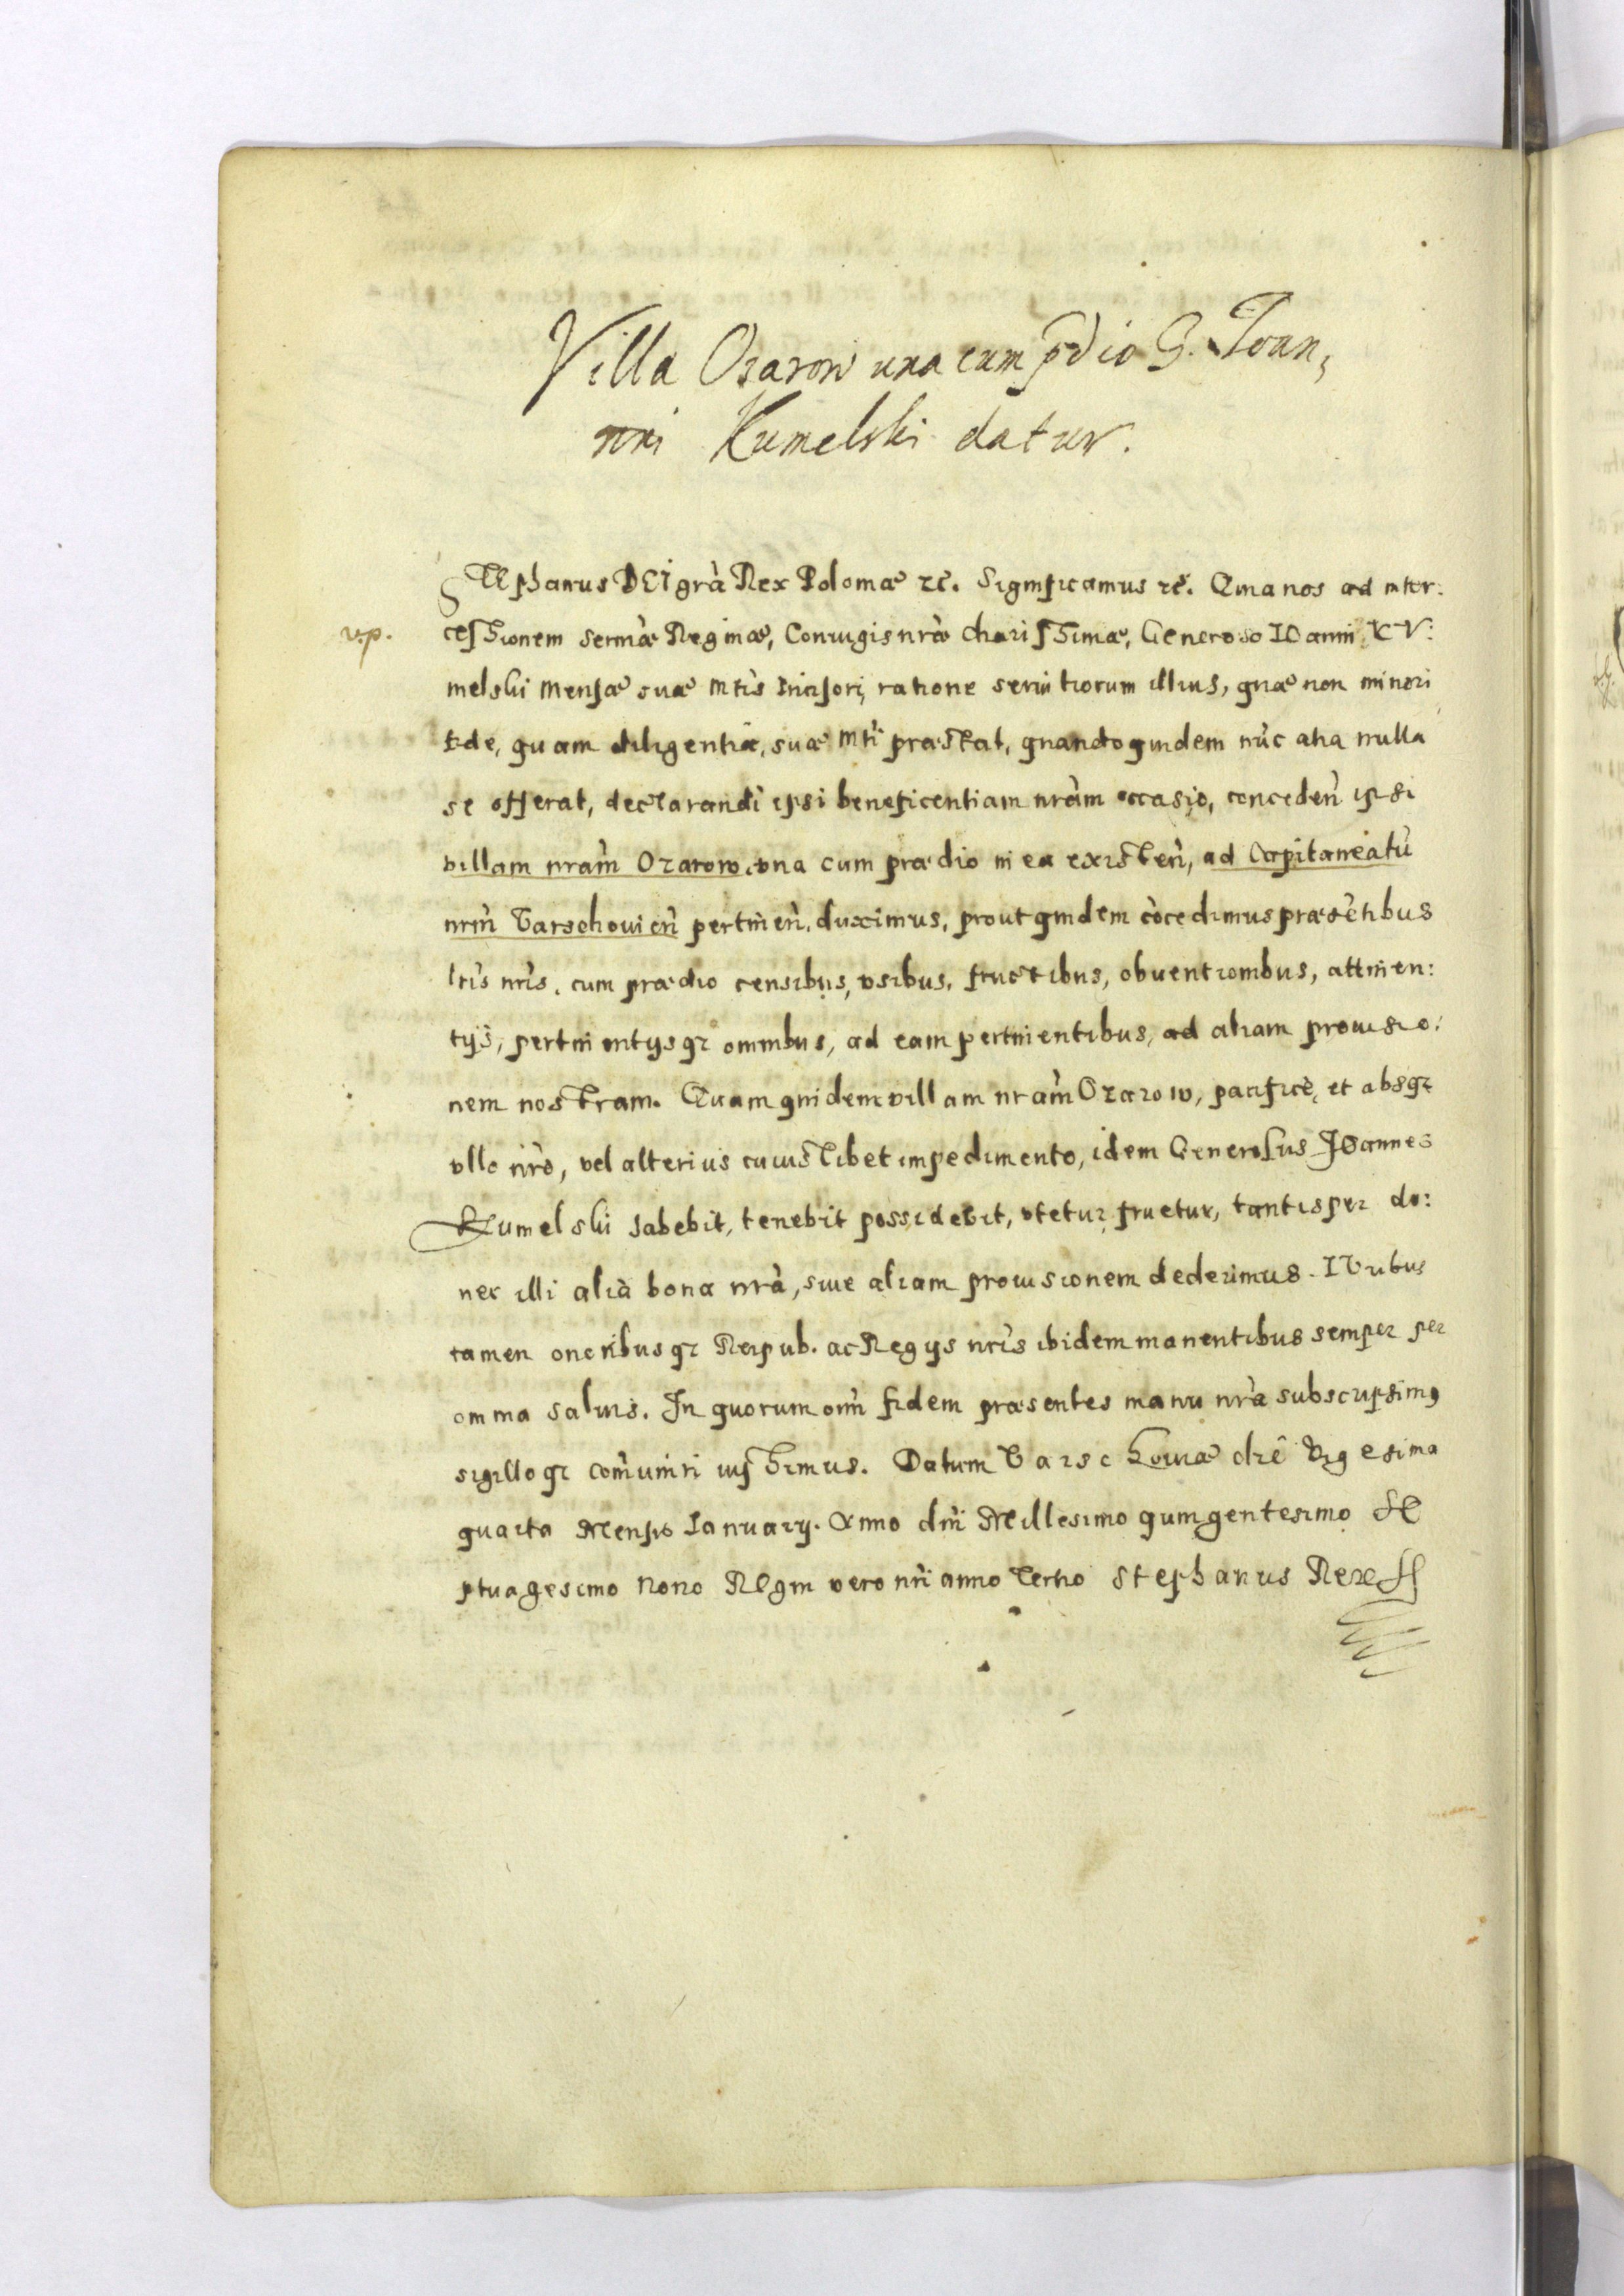 Villa Ozarow una cum pdio G. Joan,
nni Kumelski datur.
Stephanus DEI grà Rex Poloniæ zc. Significamus zc. Quia nos ad inter:
v.p.
cessionem Sermæ Reginæ, Coniugis nræ charissimæ, Generoso IOanni KV:
melski Mensæ suæ Mtis Incisori, ratione seruitiorum illius, quæ non minori
fide, quam diligentia, suæ Mti præstat, quandoquidem nuc alia nulla
se offerat, declarandi ipsi beneficentiam nram occasio, conceden ipsi
villam nram Ozarow, vna cum prædio in ea existen, ad Capitaneatu
nrm Varschouien pertinen, duximus, prout quidem cocedimus præsetibus
lris nris, cum prædio censibus, vsibus, fructibus, obuentionibus, attinen:
tijs, pertinentijsqz omnibus, ad eam pertinentibus, ad aliam prouisio:
nem nostram. Quam quidem villam nram Ozarow, pacifice, et absqz
vllo nro, vel alterius cuiuslibet impedimento, idem Generosus IOannes
Kumelski habebit, tenebit possidebit, vtetur fruetur, tantisper do:
nec illi alia bona nra, siue aliam prouisionem dederimus. IVribus
tamen oneribusqz Reipub. ac Regijs nris ibidem manentibus semper per
omnia saluis. In quorum oim fidem præsentes manu nra subscripsimg
sigilloqz comuniri iussimus. Datum Varschouiæ die Vigesima
quarta Mensis Ianuarij. Anno dni Millesimo quingentesimo Se
ptuagesimo Nono Regni vero nri anno Tertio Stephanus Rex ss